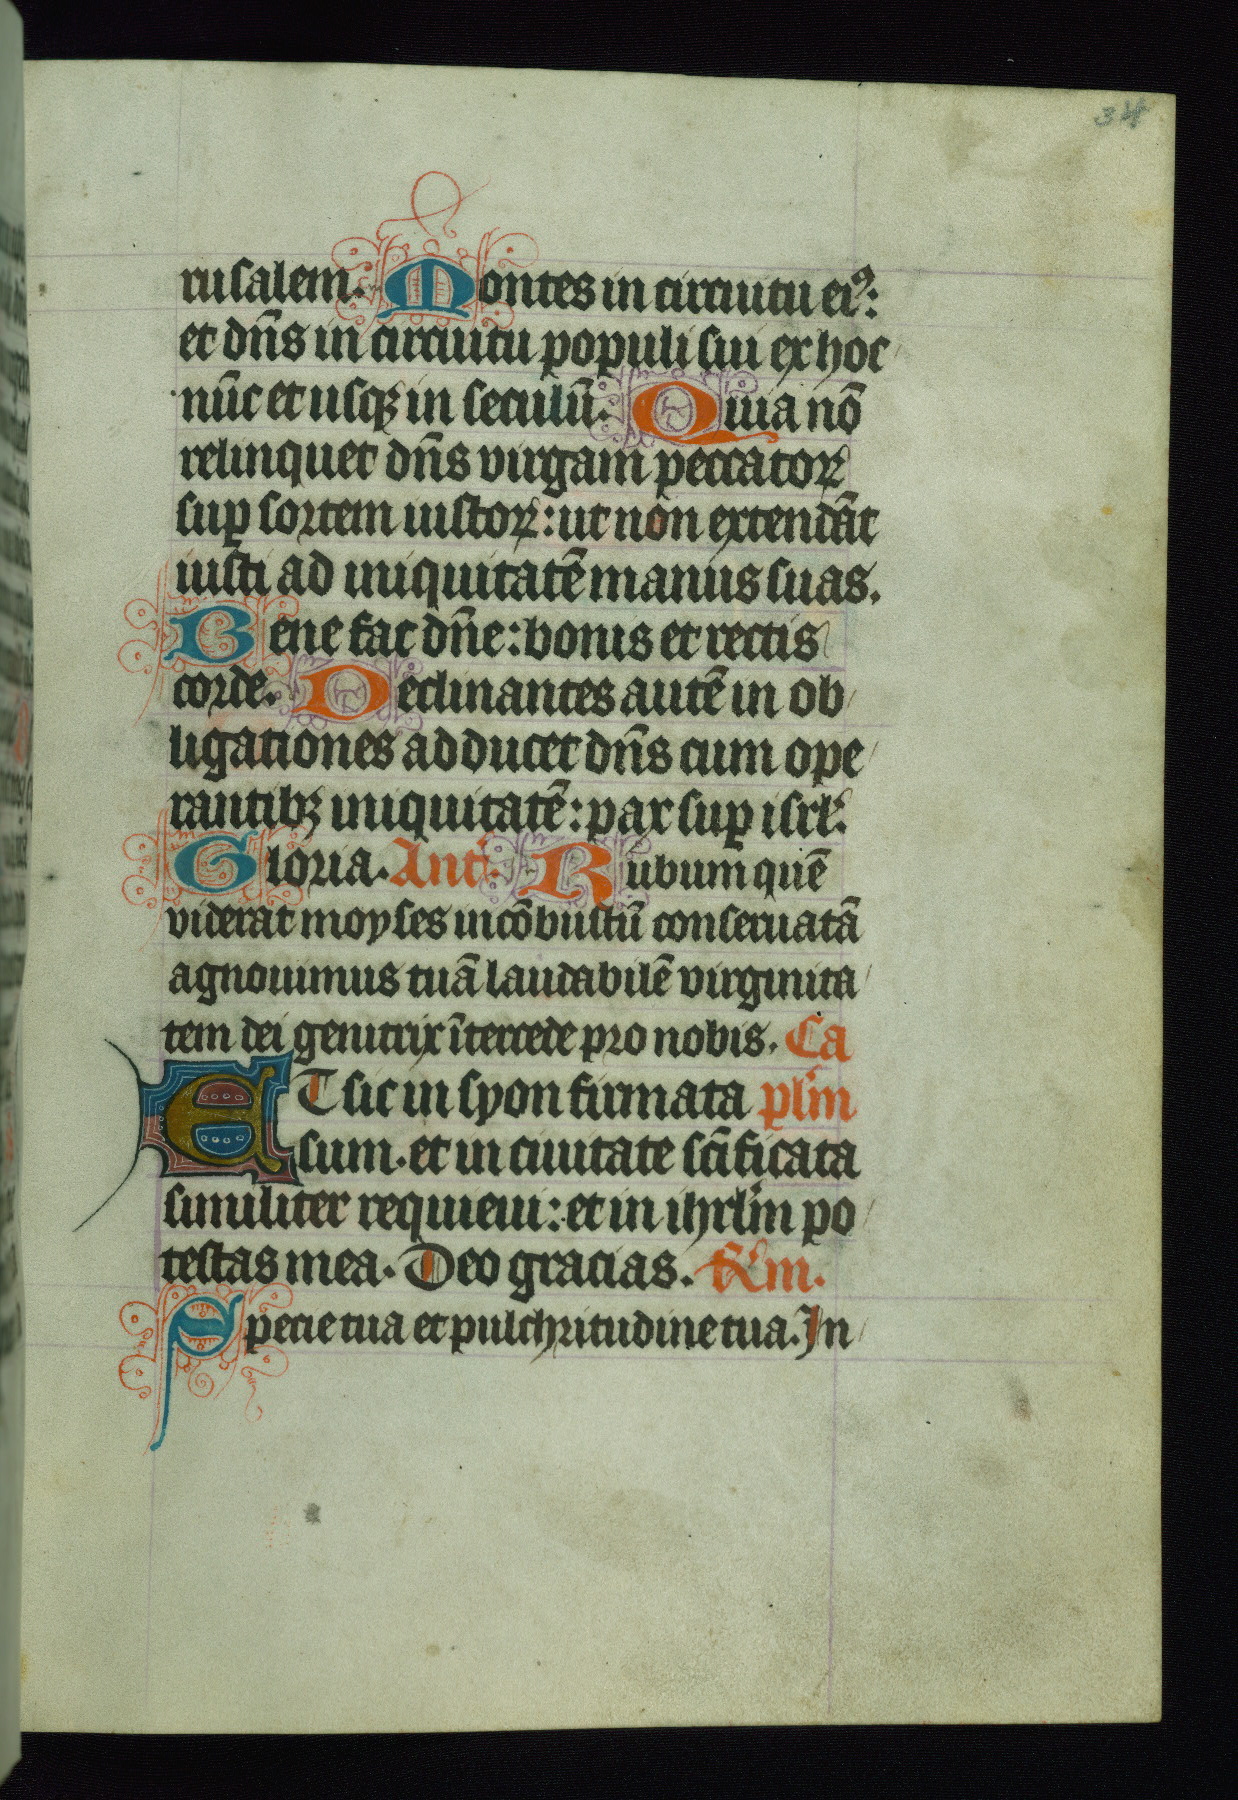 34
rusalem. Montes in circuitu eiꝰ:
et dn̄s in circuitu populi sui ex hoc
nūc et usqꝫ in seculū. Quia nō
relinquet dn̄s virgam peccatoꝝ
suꝑ sortem iustoꝝ: ut non extendāt
iusti ad iniquitatē manus suas.
Bene fac dn̄e: bonis et rectis
corde. Declinantes autē in ob
ligationes adducet dn̄s cum ope
rantibꝫ iniquitatē: pax suꝑ isrl̄.
Gloria. Ant̄. Rubum quē
viderat moyses incōbustū conseruatā
agnouimus tuā laudabilē virginita
tem dei genitrix ītercede pro nobis. Ca
ET sic in syon firmata pl̄m
sum. et in ciuitate sc̄ificata
similiter requieui: et in ihrl̄m po
testas mea. Deo gracias. R̄m.
Specie tua et pulchritudine tua. In